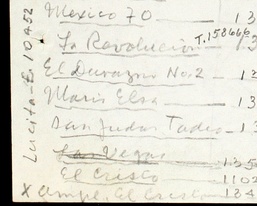 Mexico 70 — 13
La Revolucion T.158666 13
El Durazno No.2 — 12
Maria Elsa — 13
San Judas Tadeo — 13
Las Vegas 135
El Cristo 1102
X Ampl. El Cristo 134